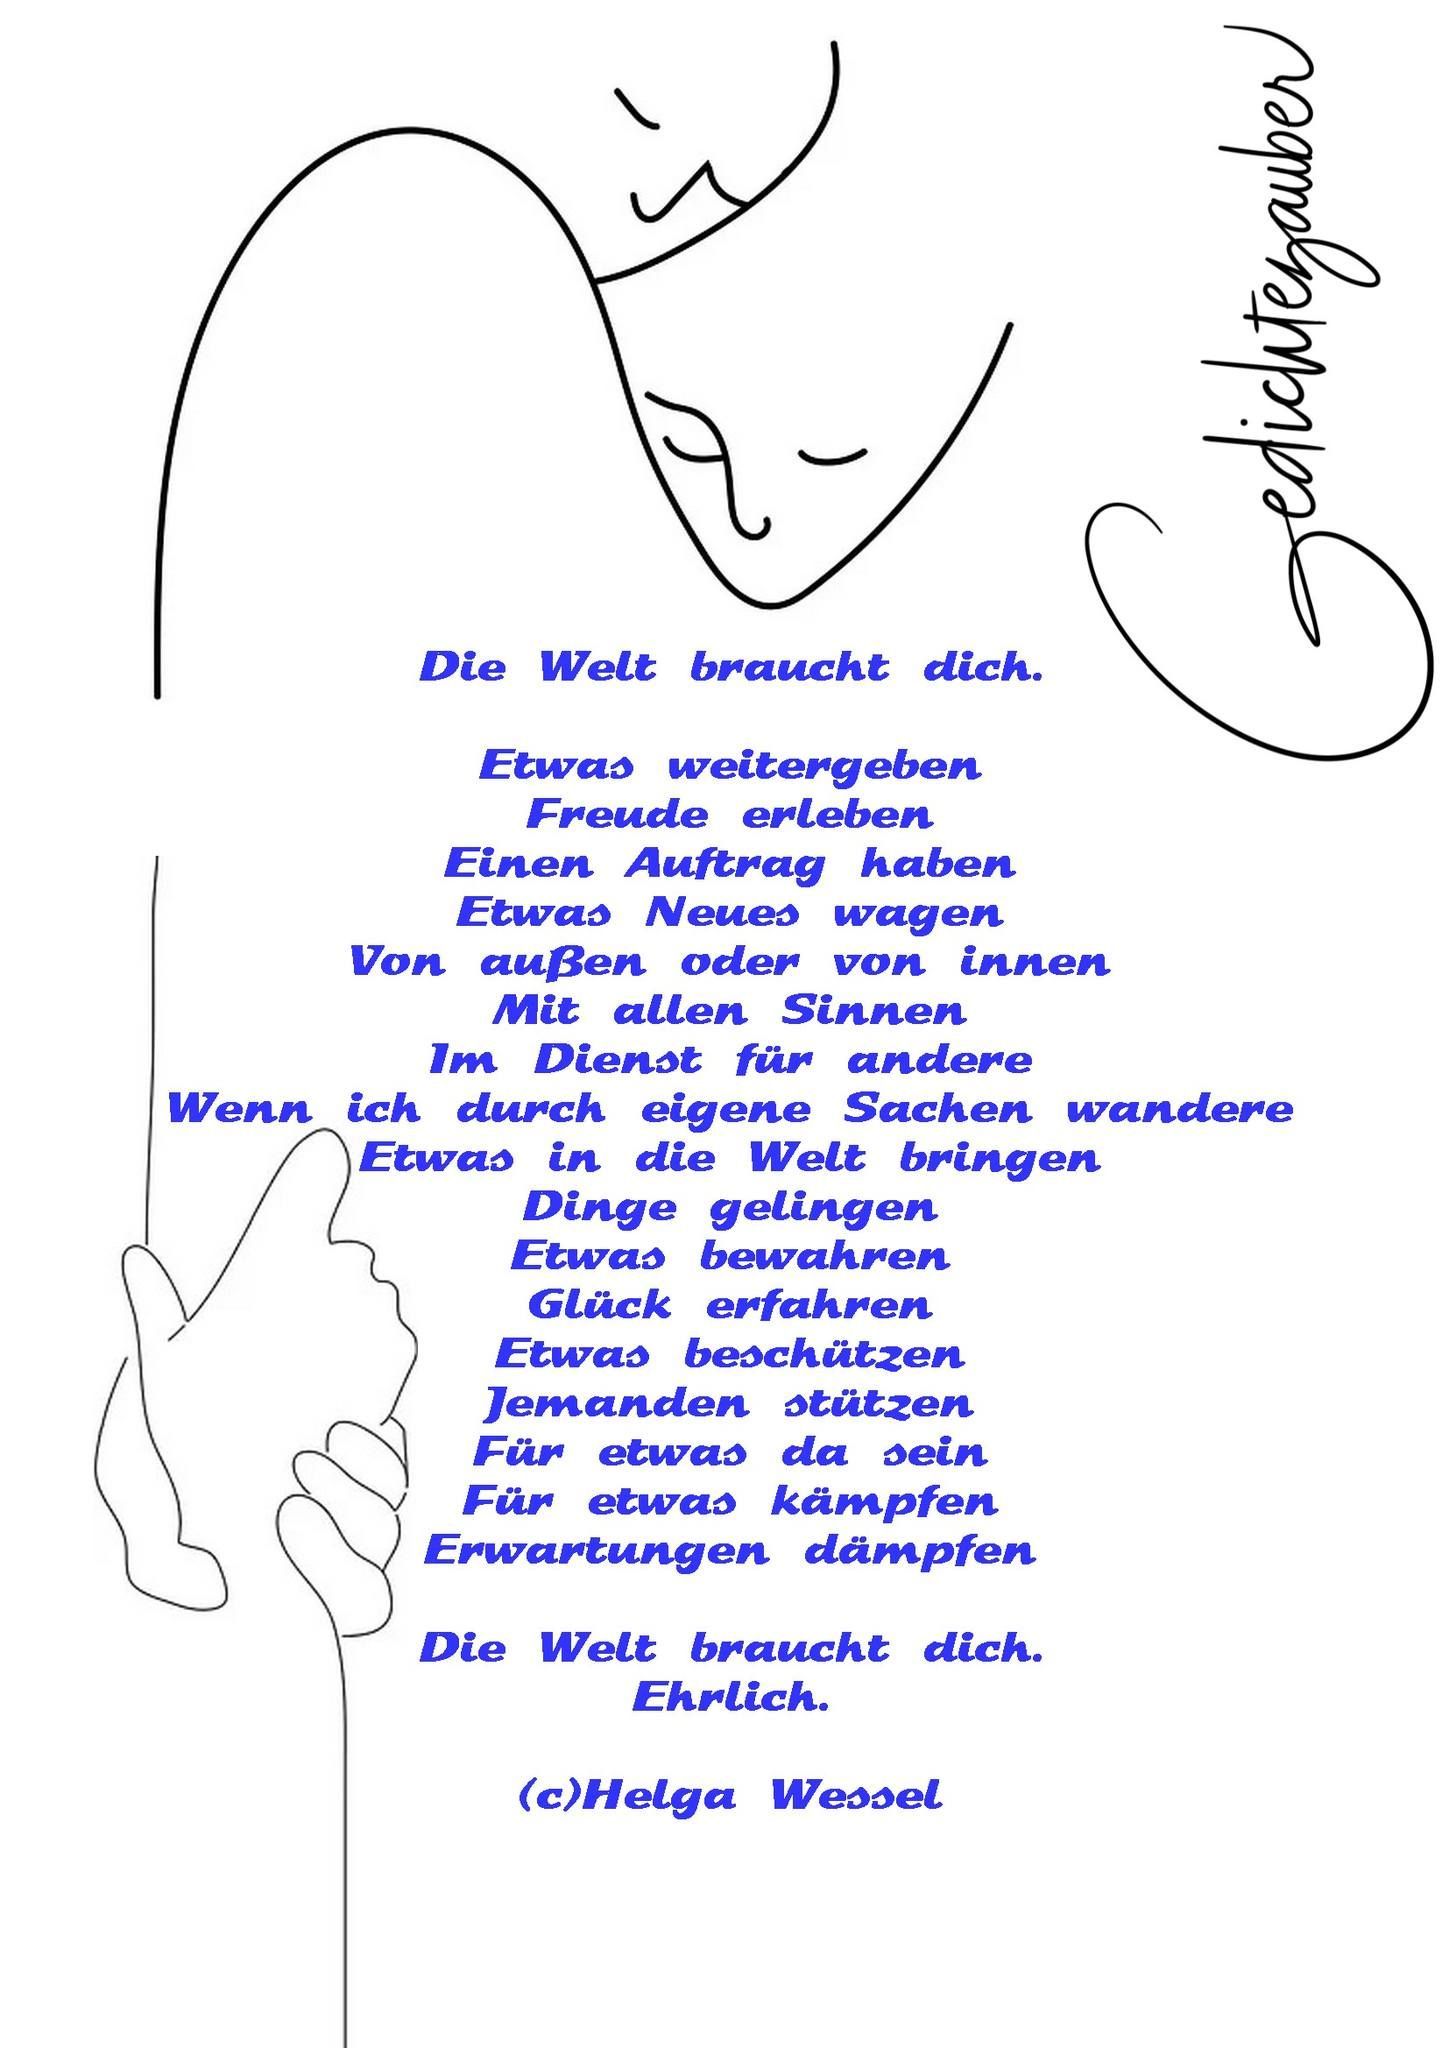 Gedichtezauber
Die Welt braucht dich.
Etwas weitergeben
Freude erleben
Einen Auftrag haben
Etwas Neues wagen
Von außen oder von innen
Mit allen Sinnen
Im Dienst für andere
Wenn ich durch eigene Sachen wandere
Etwas in die Welt bringen
Dinge gelingen
Etwas bewahren
Glück erfahren
Etwas beschützen
Jemanden stützen
Für etwas da sein
Für etwas kämpfen
Erwartungen dämpfen
Die Welt braucht dich.
Ehrlich.
(c)Helga Wessel